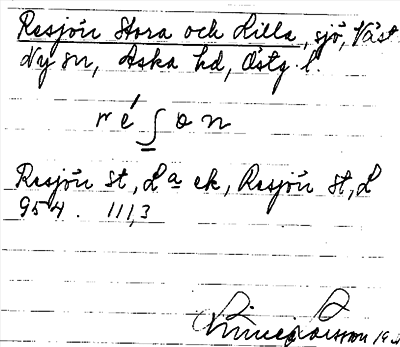 Resjön Stora och Lilla, sjö, Väst
Ny sn, Aska hd, Östg. l.
r é ʃ ɵ n
Resjön St, L a ek, Resjön St, L
954. 111,3